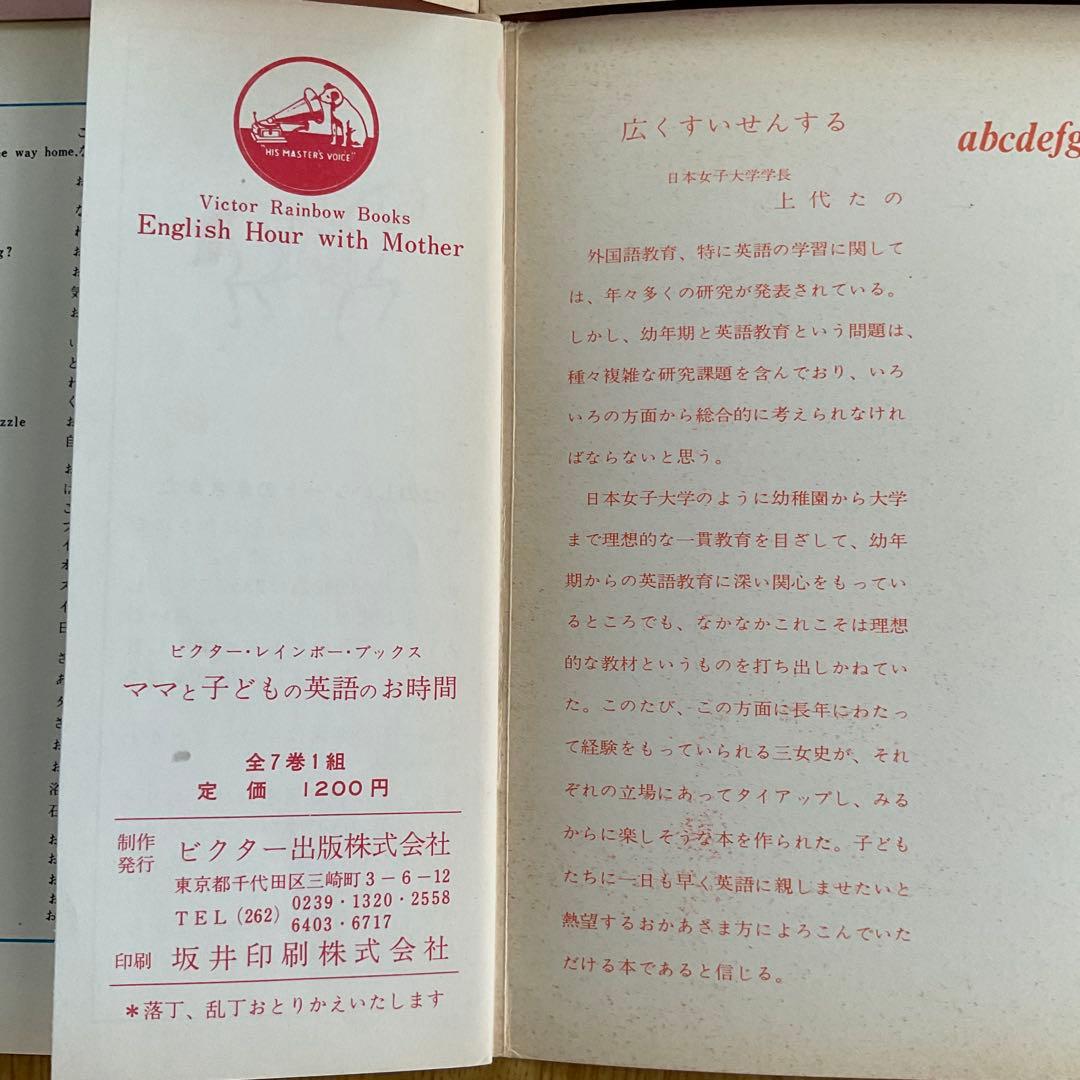 e way home.
g?
zzle
"HIS MASTER'S VOICE"
Victor Rainbow Books
English Hour with Mother
ビクター・レインボー・ブックス
ママと子どもの英語のお時間
全7巻1組
定 価 1200円
制作
発行 ビクター出版株式会社
東京都千代田区三崎町3-6-12
TEL(262) 0239・1320・2558
6403・6717
印刷 坂井印刷株式会社
*落丁、乱丁おとりかえいたします
広くすいせんする
日本女子大学学長
上代たの
外国語教育、特に英語の学習に関して
は、年々多くの研究が発表されている。
しかし、幼年期と英語教育という問題は、
種々複雑な研究課題を含んでおり、いろ
いろの方面から総合的に考えられなけれ
ばならないと思う。
日本女子大学のように幼稚園から大学
まで理想的な一貫教育を目ざして、幼年
期からの英語教育に深い関心をもってい
るところでも、なかなかこれこそは理想
的な教材というものを打ち出しかねてい
た。このたび、この方面に長年にわたっ
て経験をもっていられる三女史が、それ
ぞれの立場にあってタイアップし、みる
からに楽しそうな本を作られた。子ども
たちに一日も早く英語に親しませたいと
熱望するおかあさま方によろこんでいた
だける本であると信じる。
abcdefg